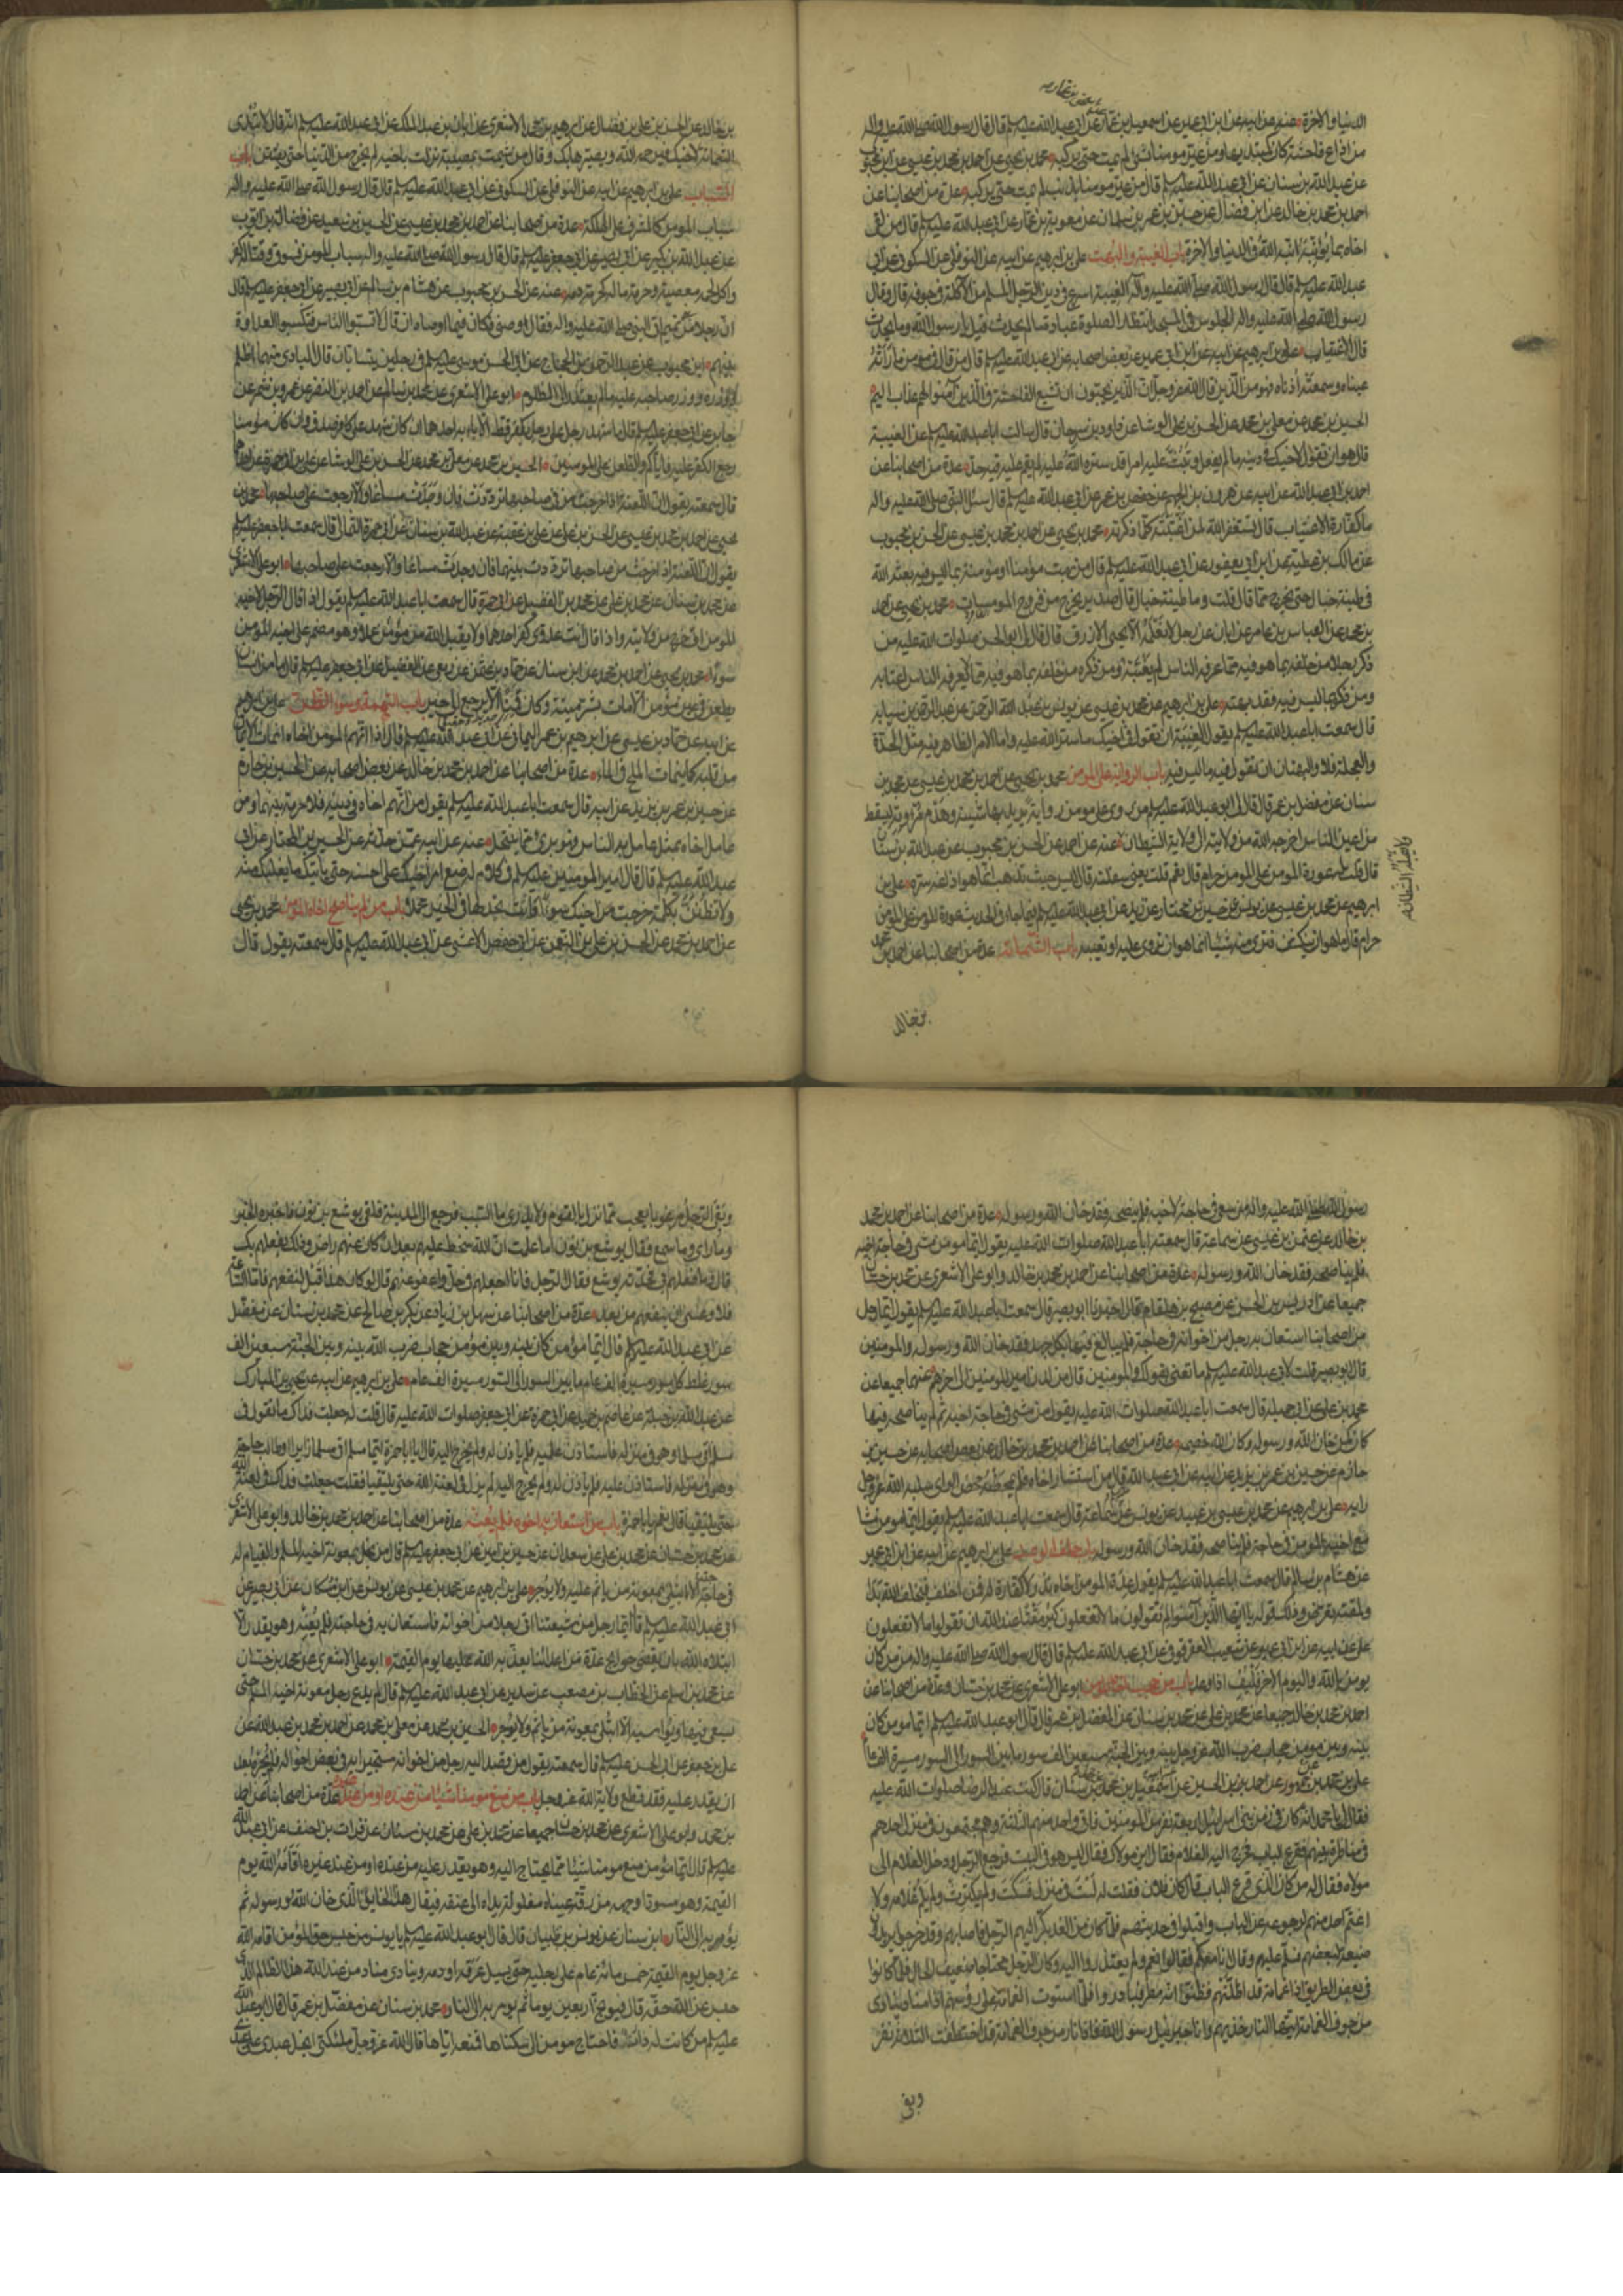 الدنيا والاخرة عنه عن ابيه عن ابن ابى عمير عن اسمعيل بن عمار عن ابى عبدالله عليه السلم قال قال رسول الله صلى الله عليه واله
من اذاع فاحشة كان كمبتديها ومن عير مومنا بشئ لم يمت حتى يركبه محمد بن يحيى عن احمد بن محمد بن عيسى عن ابن محبوب
عن عبدالله بن سنان عن ابى عبدالله عليه السلم قال من عير مومنا بذنب لم يمت حتى يركبه عدة من اصحابنا عن
احمد بن محمد بن خالد عن ابن فضال عن حسين بن عمر بن سليمان عن معوية بن عمار عن ابى عبدالله عليه السلم قال من لقى
اخاه بما يؤنبه انبه الله فى الدنيا والاخرة باب الغيبة والبهت على بن ابرهيم عن ابيه عن النوفلى عن السكونى عن ابى
عبدالله عليه السلم قال قال رسول الله صلى الله عليه وآله الغيبة اسرع فى دين الرجل المسلم من الآكلة فى جوفه قال وقال
رسول الله صلى الله عليه واله الجلوس فى المسجد انتظار الصلوة عبادة ما لم يحدث قيل يا رسول الله وما يحدث
قال الاغتياب على بن ابرهيم عن ابيه عن ابن ابى عمير عن بعض اصحابه عن ابى عبدالله عليه السلم قال من قال فى مومن ما رأته
عيناه وسمعته أذناه فهو من الذين قال الله عز وجل ان الذين يحبون ان تشيع الفاحشة فى الذين آمنوا لهم عذاب اليم
الحسين بن محمد عن معلى بن محمد عن الحسن بن على الوشا عن داود بن سرحان قال سالت ابا عبدالله عليه السلم عن الغيبة
قال هو ان تقول لاخيك فى دينه ما لم يفعل وتبث عليه امرا قد ستره الله عليه لم يقم عليه فيه حد عدة من اصحابنا عن
احمد بن ابى عبدالله عن ابيه عن هرون بن الجهم عن حفص بن عمر عن ابى عبدالله عليه السلم قال سئل النبى صلى الله عليه واله
ما كفارة الاغتياب قال تستغفر الله لمن اغتبته كلما ذكرته محمد بن يحيى عن احمد بن محمد بن عيسى عن الحسن بن محبوب
عن مالك بن عطية عن ابن ابى يعفور عن ابى عبدالله عليه السلم قال من بهت مؤمنا او مومنة بما ليس فيه بعثه الله
فى طينة خبال حتى يخرج مما قال قلت وما طينة خبال قال صديد يخرج من فروج المومسات محمد بن يحيى عن احمد
بن محمد عن العباس بن عامر عن ابان عن رجل لا نعلمه الا يحيى الازرق قال قال لى ابو الحسن صلوات الله عليه من
ذكر رجلا من خلفه بما هو فيه مما عرفه الناس لم يغتبه ومن ذكره من خلفه بما هو فيه مما لا يعرفه الناس اغتابه
ومن ذكره بما ليس فيه فقد بهته على بن ابرهيم عن محمد بن عيسى عن يونس بن عبد الرحمن عن عبد الرحمن بن سيابه
قال سمعت ابا عبدالله عليه السلم يقول الغيبة ان تقول فى اخيك ما ستر الله عليه واما الامر الظاهر فيه مثل الحدة
والعجلة فلا والبهتان ان تقول فيه ما ليس فيه باب الرواية على المومن محمد بن يحيى عن احمد بن محمد بن عيسى عن محمد بن
سنان عن مفضل بن عمر قال قال لى ابو عبدالله عليه السلم من روى على مومن رواية يريد بها شينه وهدم مروءته ليسقط
من اعين الناس اخرجه الله من ولايته الى ولاية الشيطان عنه عن احمد عن الحسن بن محبوب عن عبدالله بن سنان
قال قلت له عورة المومن على المومن حرام قال نعم قلت يعنى سفلته قال ليس حيث تذهب انما هو اذاعة سره على بن
ابرهيم عن محمد بن عيسى عن يونس عن حسين بن مختار عن زيد عن ابى عبدالله عليه السلم فيما جاء فى الحديث عورة المومن على المومن
حرام قال ما هو ان يكشف فترى منه شيئا انما هو ان تروى عليه او تعيبه باب الشماتة عدة من اصحابنا عن احمد بن محمد
بن خالد
بن خالد عن الحسن بن على بن فضال عن ابرهيم بن محمد الاشعرى عن ابان بن عبد الملك عن ابى عبدالله عليه السلم انه قال لا تبدى
الشماتة لاخيك فيرحمه الله ويصيرها بك وقال من شمت بمصيبة نزلت باخيه لم يخرج من الدنيا حتى يفتتن باب
السباب على بن ابرهيم عن ابيه عن النوفلى عن السكونى عن ابى عبدالله عليه السلم قال قال رسول الله صلى الله عليه واله
سباب المومن كالمشرف على الهلكة عدة من اصحابنا عن احمد بن محمد بن عيسى عن الحسين بن سعيد عن فضالة بن ايوب
عن عبدالله بن بكير عن ابى بصير عن ابى جعفر عليه السلم قال قال رسول الله صلى الله عليه واله سباب المومن فسوق وقتاله كفر
واكل لحمه معصية وحرمة ماله كحرمة دمه عنه عن الحسن بن محبوب عن هشام بن سالم عن ابى بصير عن ابى جعفر عليه السلم قال
ان رجلا من تميم اتى النبى صلى الله عليه واله فقال اوصنى فكان فيما اوصاه ان قال لا تسبوا الناس فتكسبوا العداوة
بينهم ابن محبوب عن عبد الرحمن بن الحجاج عن ابى الحسن موسى عليه السلم فى رجلين يتسابان قال البادى منهما اظلم
ووزره ووزر صاحبه عليه ما لم يعتذر الى المظلوم ابو على الاشعرى عن محمد بن سالم عن احمد بن النضر عن عمرو بن شمر عن
جابر عن ابى جعفر عليه السلم قال ما شهد رجل على رجل بكفر قط الا باء به احدهما ان كان شهد على كافر صدق وان كان مؤمنا
رجع الكفر عليه فاياكم والطعن على المومنين الحسين بن محمد عن معلى بن محمد عن الحسن بن على الوشا عن على بن ابى حمزة عن احدهما
قال سمعته يقول ان اللعنة اذا خرجت من فى صاحبها ترددت فان وجدت مساغا والا رجعت على صاحبها محمد بن
يحيى عن احمد بن محمد بن عيسى عن الحسن بن على عن على بن عقبة عن عبدالله بن سنان عن ابى حمزة الثمالى قال سمعت ابا جعفر عليه السلم
يقول ان اللعنة اذا خرجت من صاحبها ترددت بينهما فان وجدت مساغا والا رجعت على صاحبها ابو على الاشعرى
عن محمد بن سنان عن محمد بن على عن محمد بن الفضيل عن ابى حمزة قال سمعت ابا عبدالله عليه السلم يقول اذا قال الرجل لاخيه
المومن اف خرج من ولايته واذا قال انت عدوى كفر احدهما ولا يقبل الله من مؤمن عملا وهو مضمر على اخيه المومن
سوءا محمد بن يحيى عن احمد بن محمد عن ابن سنان عن حماد بن عثمن عن ربعى عن الفضيل عن ابى جعفر عليه السلم قال ما من انسان
يطعن فى عين مؤمن الا مات بشر ميتة وكان قمنا الا يرجع الى خير باب التهمة وسوء الظن على بن ابرهيم
عن ابيه عن حماد بن عيسى عن ابرهيم بن عمر اليمانى عن ابى عبدالله عليه السلم قال اذا اتهم المومن اخاه انماث الايمان
من قلبه كما ينماث الملح فى الماء عدة من اصحابنا عن احمد بن محمد بن خالد عن بعض اصحابه عن الحسين بن حازم
عن حسين بن عمر بن يزيد عن ابيه قال سمعت ابا عبدالله عليه السلم يقول من اتهم اخاه فى دينه فلا حرمة بينهما ومن
عامل اخاه بمثل ما عامل به الناس فهو برئ مما ينتحل عنه عن ابيه عمن حدثه عن الحسين بن المختار عن ابى
عبدالله عليه السلم قال قال امير المومنين عليه السلم فى كلام له ضع امر اخيك على احسنه حتى ياتيك ما يغلبك منه
ولا تظنن بكلمة خرجت من اخيك سوءا وانت تجد لها فى الخير محملا باب من لم يناصح اخاه المومن محمد بن يحيى
عن احمد بن محمد عن الحسن بن على بن النعمن عن ابى حفص الاعشى عن ابى عبدالله عليه السلم قال سمعته يقول قال
رسول الله صلى الله عليه واله من سعى فى حاجة لاخيه فلم ينصحه فقد خان الله ورسوله عدة من اصحابنا عن احمد بن محمد
بن خالد عن عثمن بن عيسى عن سماعة قال سمعت ابا عبدالله صلوات الله عليه يقول ايما مومن مشى فى حاجة اخيه
فلم يناصحه فقد خان الله ورسوله عدة من اصحابنا عن احمد بن محمد بن خالد وابو على الاشعرى عن محمد بن حسان
جميعا عن ادريس بن الحسن عن مصبح بن هلقام قال اخبرنا ابو بصير قال سمعت ابا عبدالله عليه السلم يقول ايما رجل
من اصحابنا استعان به رجل من اخوانه فى حاجة فلم يبالغ فيها بكل جهد فقد خان الله ورسوله والمومنين
قال ابو بصير قلت لابى عبدالله عليه السلم ما تعنى بقولك والمومنين قال من لدن امير المومنين الى اخرهم عنهما جميعا عن
محمد بن على عن ابى جميلة قال سمعت ابا عبدالله صلوات الله عليه يقول من مشى فى حاجة اخيه ثم لم يناصحه فيها
كان كمن خان الله ورسوله وكان الله خصمه عدة من اصحابنا عن احمد بن محمد بن خالد عن بعض اصحابه عن حسين بن
حازم عن حسين بن عمر بن يزيد عن ابيه عن ابى عبدالله قال من استشار اخاه فلم يمحضه محض الراى سلبه الله عز وجل
رايه على بن ابرهيم عن محمد بن عيسى بن عبيد عن يونس عن سماعة قال سمعت ابا عبدالله عليه السلم يقول ايما مومن مشى
مع اخيه المومن فى حاجة فلم يناصحه فقد خان الله ورسوله باب خلف الوعد على بن ابرهيم عن ابيه عن ابن ابى عمير
عن هشام بن سالم قال سمعت ابا عبدالله عليه السلم يقول عدة المومن اخاه نذر لا كفارة له فمن اخلف فبخلف الله بدأ
ولمقته تعرض وذلك قوله يا ايها الذين آمنوا لم تقولون ما لا تفعلون كبر مقتا عند الله ان تقولوا ما لا تفعلون
على عن ابيه عن ابن ابى عمير عن شعيب العقرقوفى عن ابى عبدالله عليه السلم قال قال رسول الله صلى الله عليه واله من كان
يومن بالله واليوم الاخر فليف اذا وعد باب من حجب اخاه المومن ابو على الاشعرى عن محمد بن حسان وعدة من اصحابنا عن
احمد بن محمد بن خالد جميعا عن محمد بن على عن محمد بن سنان عن المفضل بن عمر قال قال ابو عبدالله عليه السلم ايما مومن كان
بينه وبين مومن حجاب ضرب الله عز وجل بينه وبين الجنة سبعين الف سور ما بين السور الى السور مسيرة الف عام
على بن محمد عن محمد بن جمهور عن احمد بن الحسين عن ابيه عن اسمعيل بن محمد عن محمد بن سنان قال كنت عند الرضا صلوات الله عليه
فقال لى يا محمد انه كان فى زمن بنى اسرائيل اربعة نفر من المومنين فاتى واحد منهم الثلثة وهم مجتمعون فى منزل احدهم
فى مناظرة بينهم فقرع الباب فخرج اليه الغلام فقال اين مولاك فقال ليس هو فى البيت فرجع الرجل ودخل الغلام الى
مولاه فقال له من كان الذى قرع الباب قال كان فلان فقلت له لست فى منزلك فسكت ولم يكترث ولم يلم غلامه ولا
اغتم احد منهم لرجوعه عن الباب واقبلوا فى حديثهم فلما كان من الغد بكر اليهم الرجل فاصابهم وقد خرجوا يريدون
ضيعة لبعضهم فسلم عليهم وقال انا معكم فقالوا نعم ولم يعتذروا اليه وكان الرجل محتاجا ضعيف الحال فلما كانوا
فى بعض الطريق اذا غمامة قد اظلتهم فظنوا انه مطر فبادروا فلما استوت الغمامة على رؤسهم اذا مناد ينادى
من جوف الغمامة ايتها النار خذيهم وانا جبرئيل رسول الله فاذا نار من جوف الغمامة قد اختطفت الثلاثة نفر
وبقى
وبقى الرجل مرعوبا يعجب مما نزل بالقوم ولا يدرى ما السبب فرجع الى المدينة فلقى يوشع بن نون فاخبره الخبر
وما راى وما سمع فقال يوشع بن نون اما علمت ان الله سخط عليهم بعد ان كان عنهم راض وذلك بفعلهم بك
قال وما فعلهم بى فحدثه يوشع فقال الرجل فانا اجعلهم فى حل واعفو عنهم قال لو كان هذا قبل لنفعهم فاما الساعة
فلا وعسى ان ينفعهم من بعد عدة من اصحابنا عن سهل بن زياد عن بكر بن صالح عن محمد بن سنان عن مفضل
عن ابى عبدالله عليه السلم قال ايما مؤمن كان بينه وبين مؤمن حجاب ضرب الله بينه وبين الجنة سبعين الف
سور غلظ كل سور مسيرة الف عام ما بين السور الى السور مسيرة الف عام على بن ابرهيم عن ابيه عن يحيى بن المبارك
عن عبدالله بن جبلة عن عاصم بن حميد عن ابى حمزة عن ابى جعفر صلوات الله عليه قال قلت له جعلت فداك ما تقول فى
مسلم اتى مسلما وهو فى منزله فاستاذن عليه فلم ياذن له ولم يخرج اليه قال يا ابا حمزة ايما مسلم اتى مسلما زايرا او طالب حاجة
وهو فى منزله فاستاذن عليه فلم ياذن له ولم يخرج اليه لم يزل فى لعنة الله حتى يلتقيا فقلت جعلت فداك فى لعنة الله
حتى يلتقيا قال نعم يا ابا حمزة باب من استعان به اخوه فلم يعنه عدة من اصحابنا عن احمد بن محمد بن خالد وابو على الاشعرى
عن محمد بن حسان عن محمد بن على عن سعدان عن حسين بن امين عن ابى جعفر عليه السلم قال من بخل بمعونة اخيه المسلم والقيام له
فى حاجته الا ابتلى بمعونة من ياثم عليه ولا يؤجر على بن ابرهيم عن محمد بن عيسى عن يونس عن ابن مسكان عن ابى بصير عن
ابى عبدالله عليه السلم قال ايما رجل من شيعتنا اتى رجلا من اخوانه فاستعان به فى حاجته فلم يعنه وهو يقدر الا
ابتلاه الله بان يقضى حوايج عدة من اعدائنا يعذبه الله عليها يوم القيمة ابو على الاشعرى عن محمد بن حسان
عن محمد بن اسلم عن الخطاب بن مصعب عن سدير عن ابى عبدالله عليه السلم قال لم يدع رجل معونة اخيه المسلم حتى
يسعى فيها ويواسيه الا ابتلى بمعونة من ياثم ولا يؤجر الحسين بن محمد عن معلى بن محمد عن احمد بن محمد بن عبدالله عن
على بن جعفر عن ابى الحسن عليه السلم قال سمعته يقول من قصد اليه رجل من اخوانه مستجيرا به فى بعض احواله فلم يجره بعد
ان يقدر عليه فقد قطع ولاية الله عز وجل باب من منع مومنا شيئا من عنده او من عند غيره عدة من اصحابنا عن احمد
بن محمد وابو على الاشعرى عن محمد بن حسان جميعا عن محمد بن على عن محمد بن سنان عن فرات بن احنف عن ابى عبدالله
عليه السلم قال ايما مؤمن منع مومنا شيئا مما يحتاج اليه وهو يقدر عليه من عنده او من عند غيره اقامه الله يوم
القيمة وهو مسودا وجهه مزرقة عيناه مغلولة يداه الى عنقه فيقال هذا الخاين الذى خان الله ورسوله ثم
يؤمر به الى النار ابن سنان عن يونس بن ظبيان قال قال ابو عبدالله عليه السلم يا يونس من حبس حق المؤمن اقامه الله
عز وجل يوم القيمة خمس مائة عام على رجليه حتى يسيل عرقه او دمه وينادى مناد من عند الله هذا الظالم الذى
حبس عن الله حقه قال فيوبخ اربعين يوما ثم يومر به الى النار محمد بن سنان عن مفضل بن عمر قال قال ابو عبدالله
عليه السلم من كانت له دار فاحتاج مومن الى سكناها فمنعه اياها قال الله عز وجل ملئكتى ابخل عبدى على عبدى